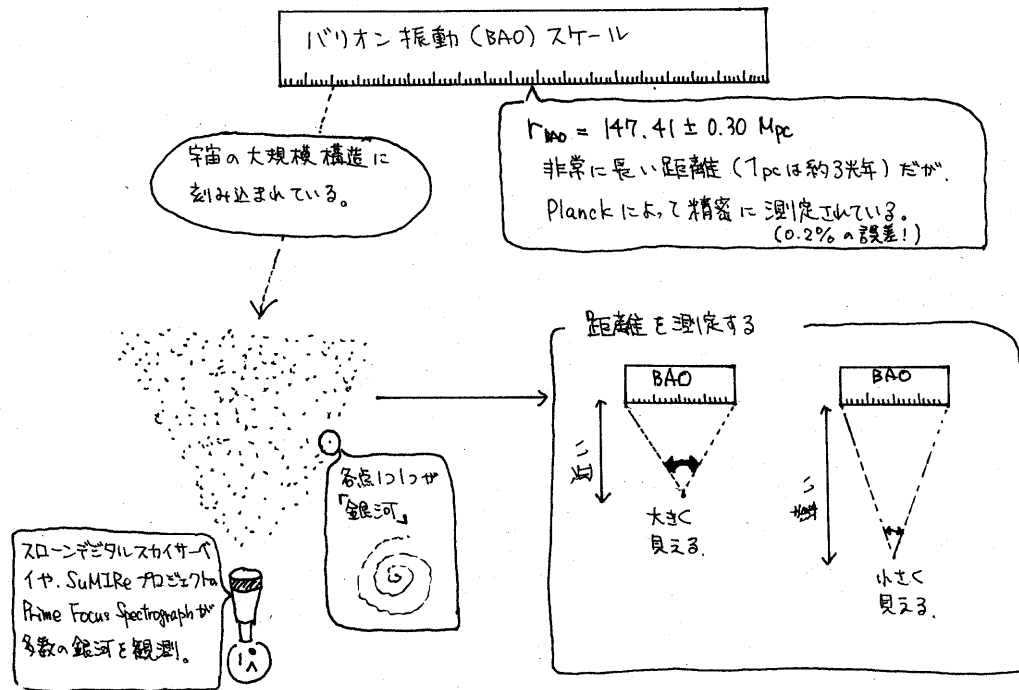 バリオン振動(BAO)スケール
r_BAO = 147.41 ± 0.30 Mpc
非常に長い距離(1pcは約3光年)だが、
Planckによって精密に測定されている。
(0.2%の誤差!)
宇宙の大規模構造に
刻み込まれている。
距離を測定する
BAO
近い
大きく
見える.
BAO
遠い
小さく
見える.
各点1つ1つが
「銀河」
スローンデジタルスカイサーベ
イや、SuMIRe プロジェクトの
Prime Focus Spectrographが
多数の銀河を観測。